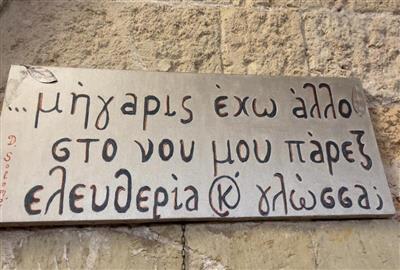 ...μήγαρις έχω άλλο
στο νου μου πάρεξ
ελευθερία κ' γλώσσα;